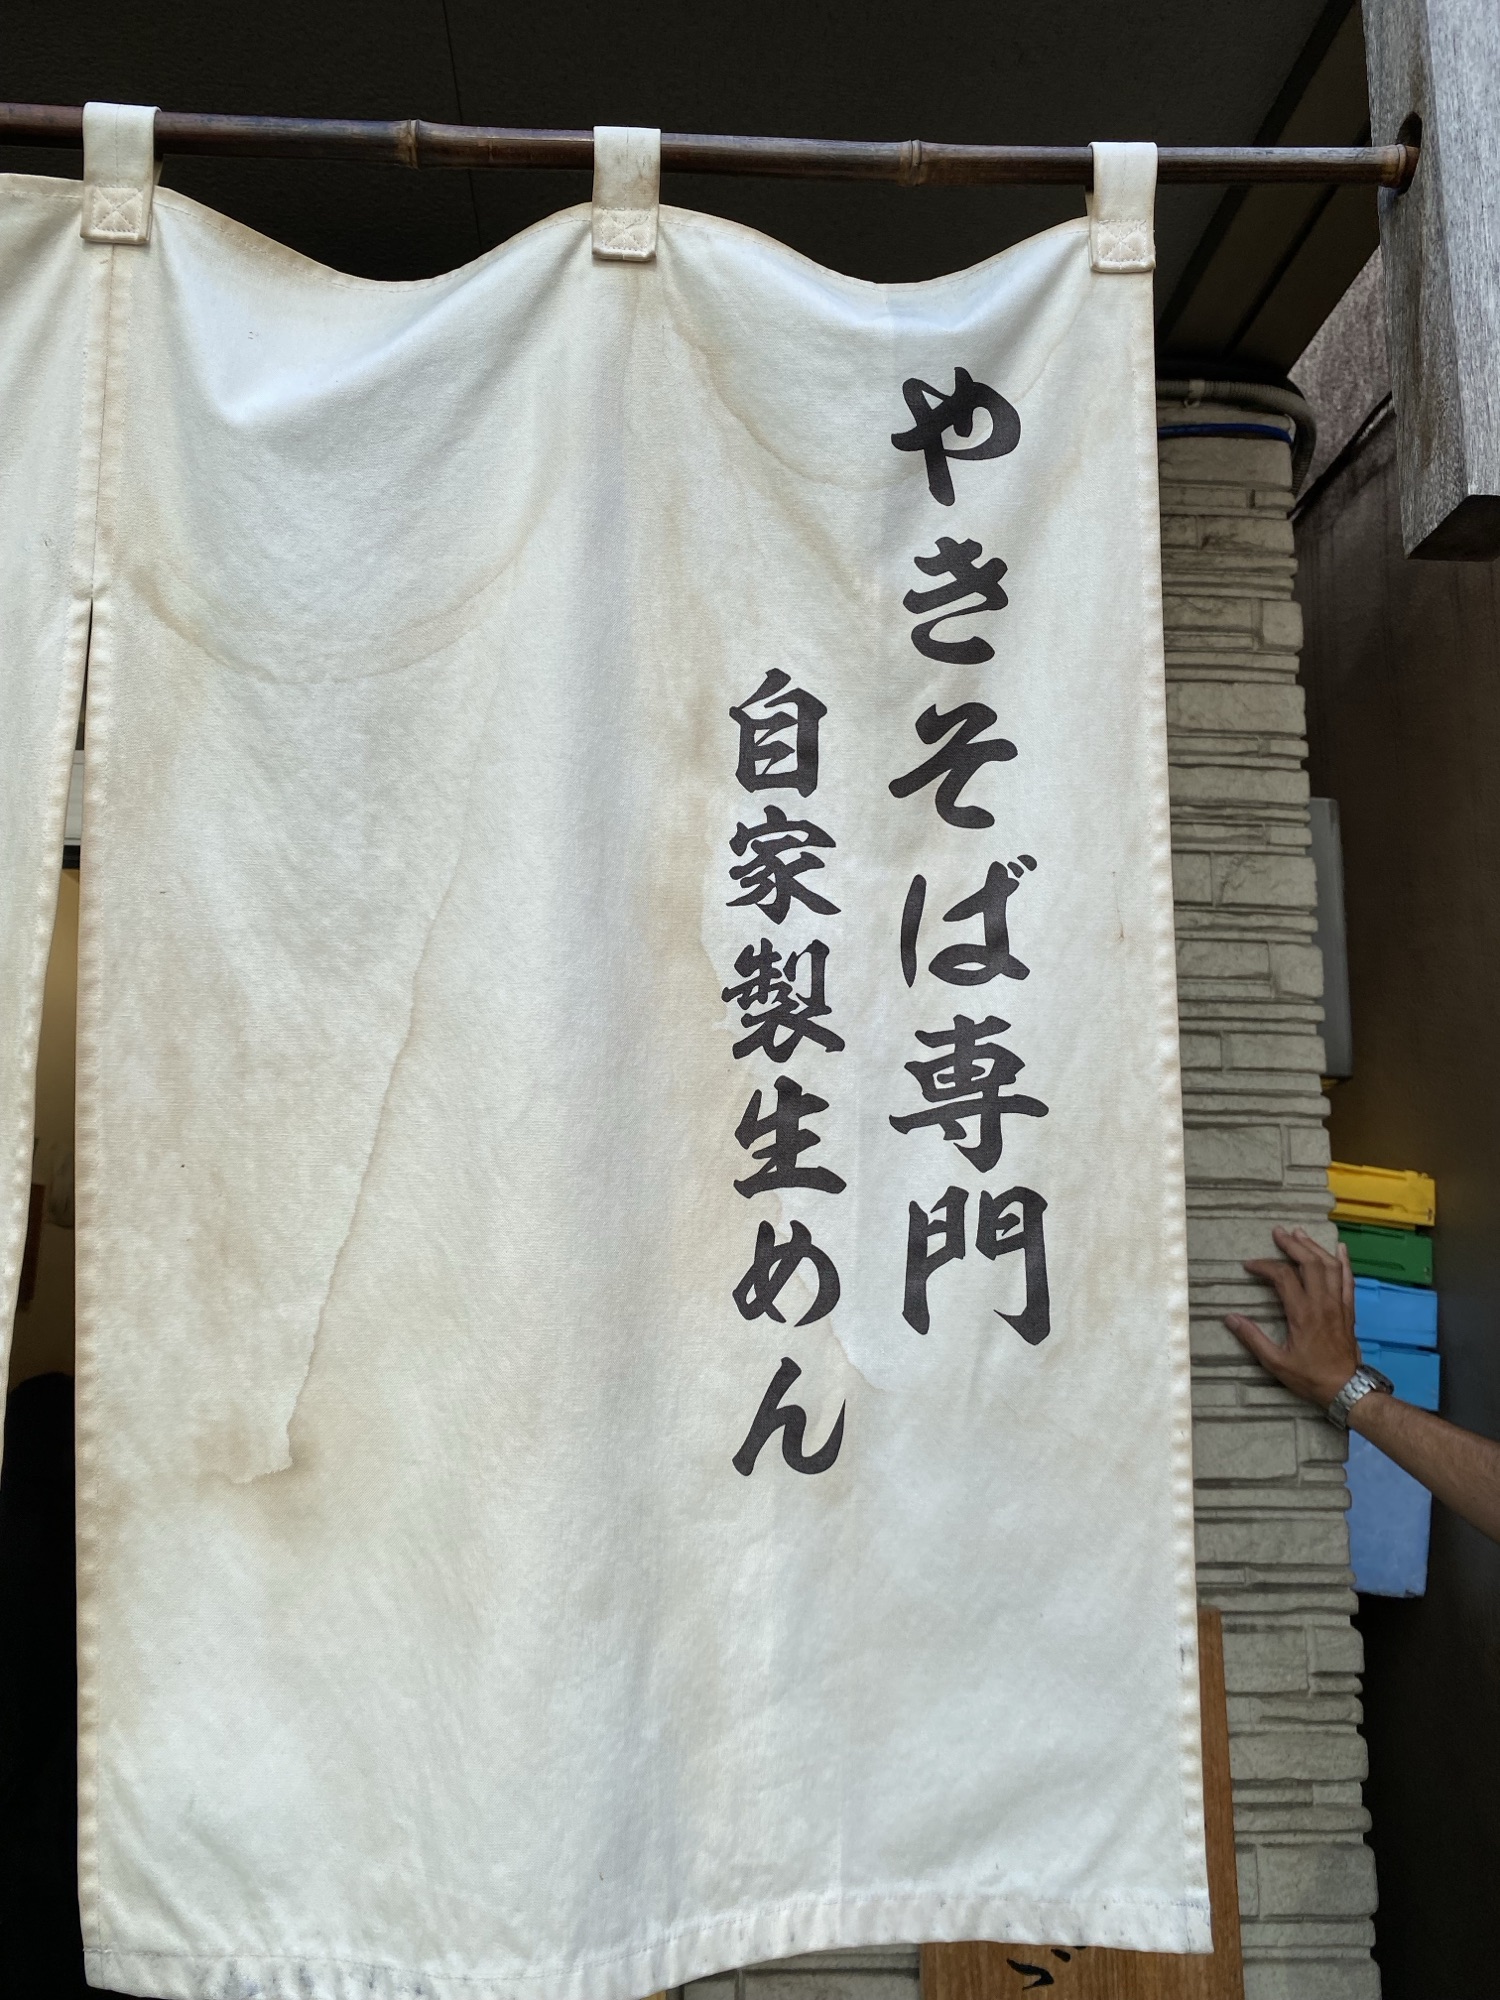 やきそば専門
自家製生めん
ご